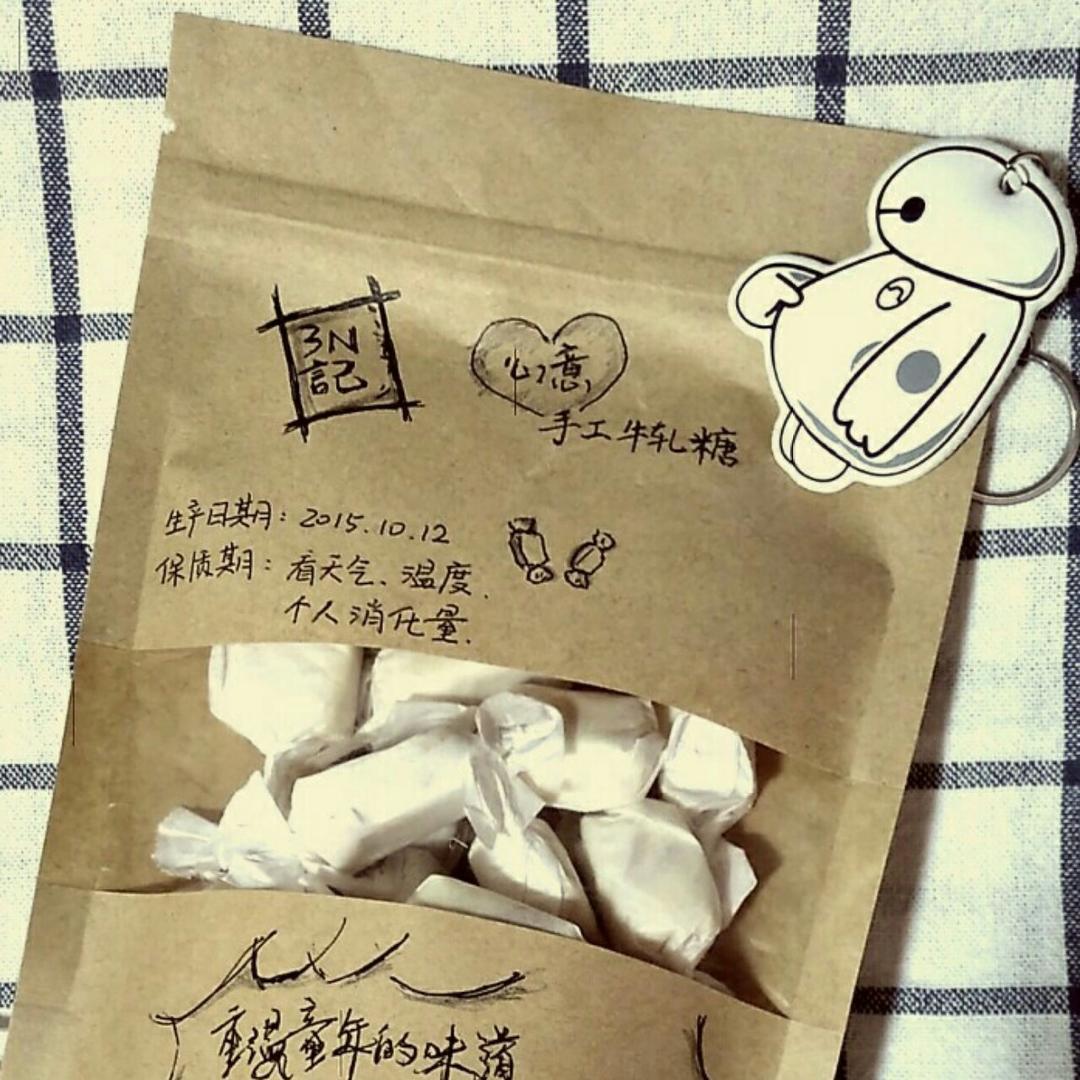 3N
記
心意
手工牛轧糖
生产日期：2015.10.12
保质期：看天气、温度、
个人消化量.
重温童年的味道